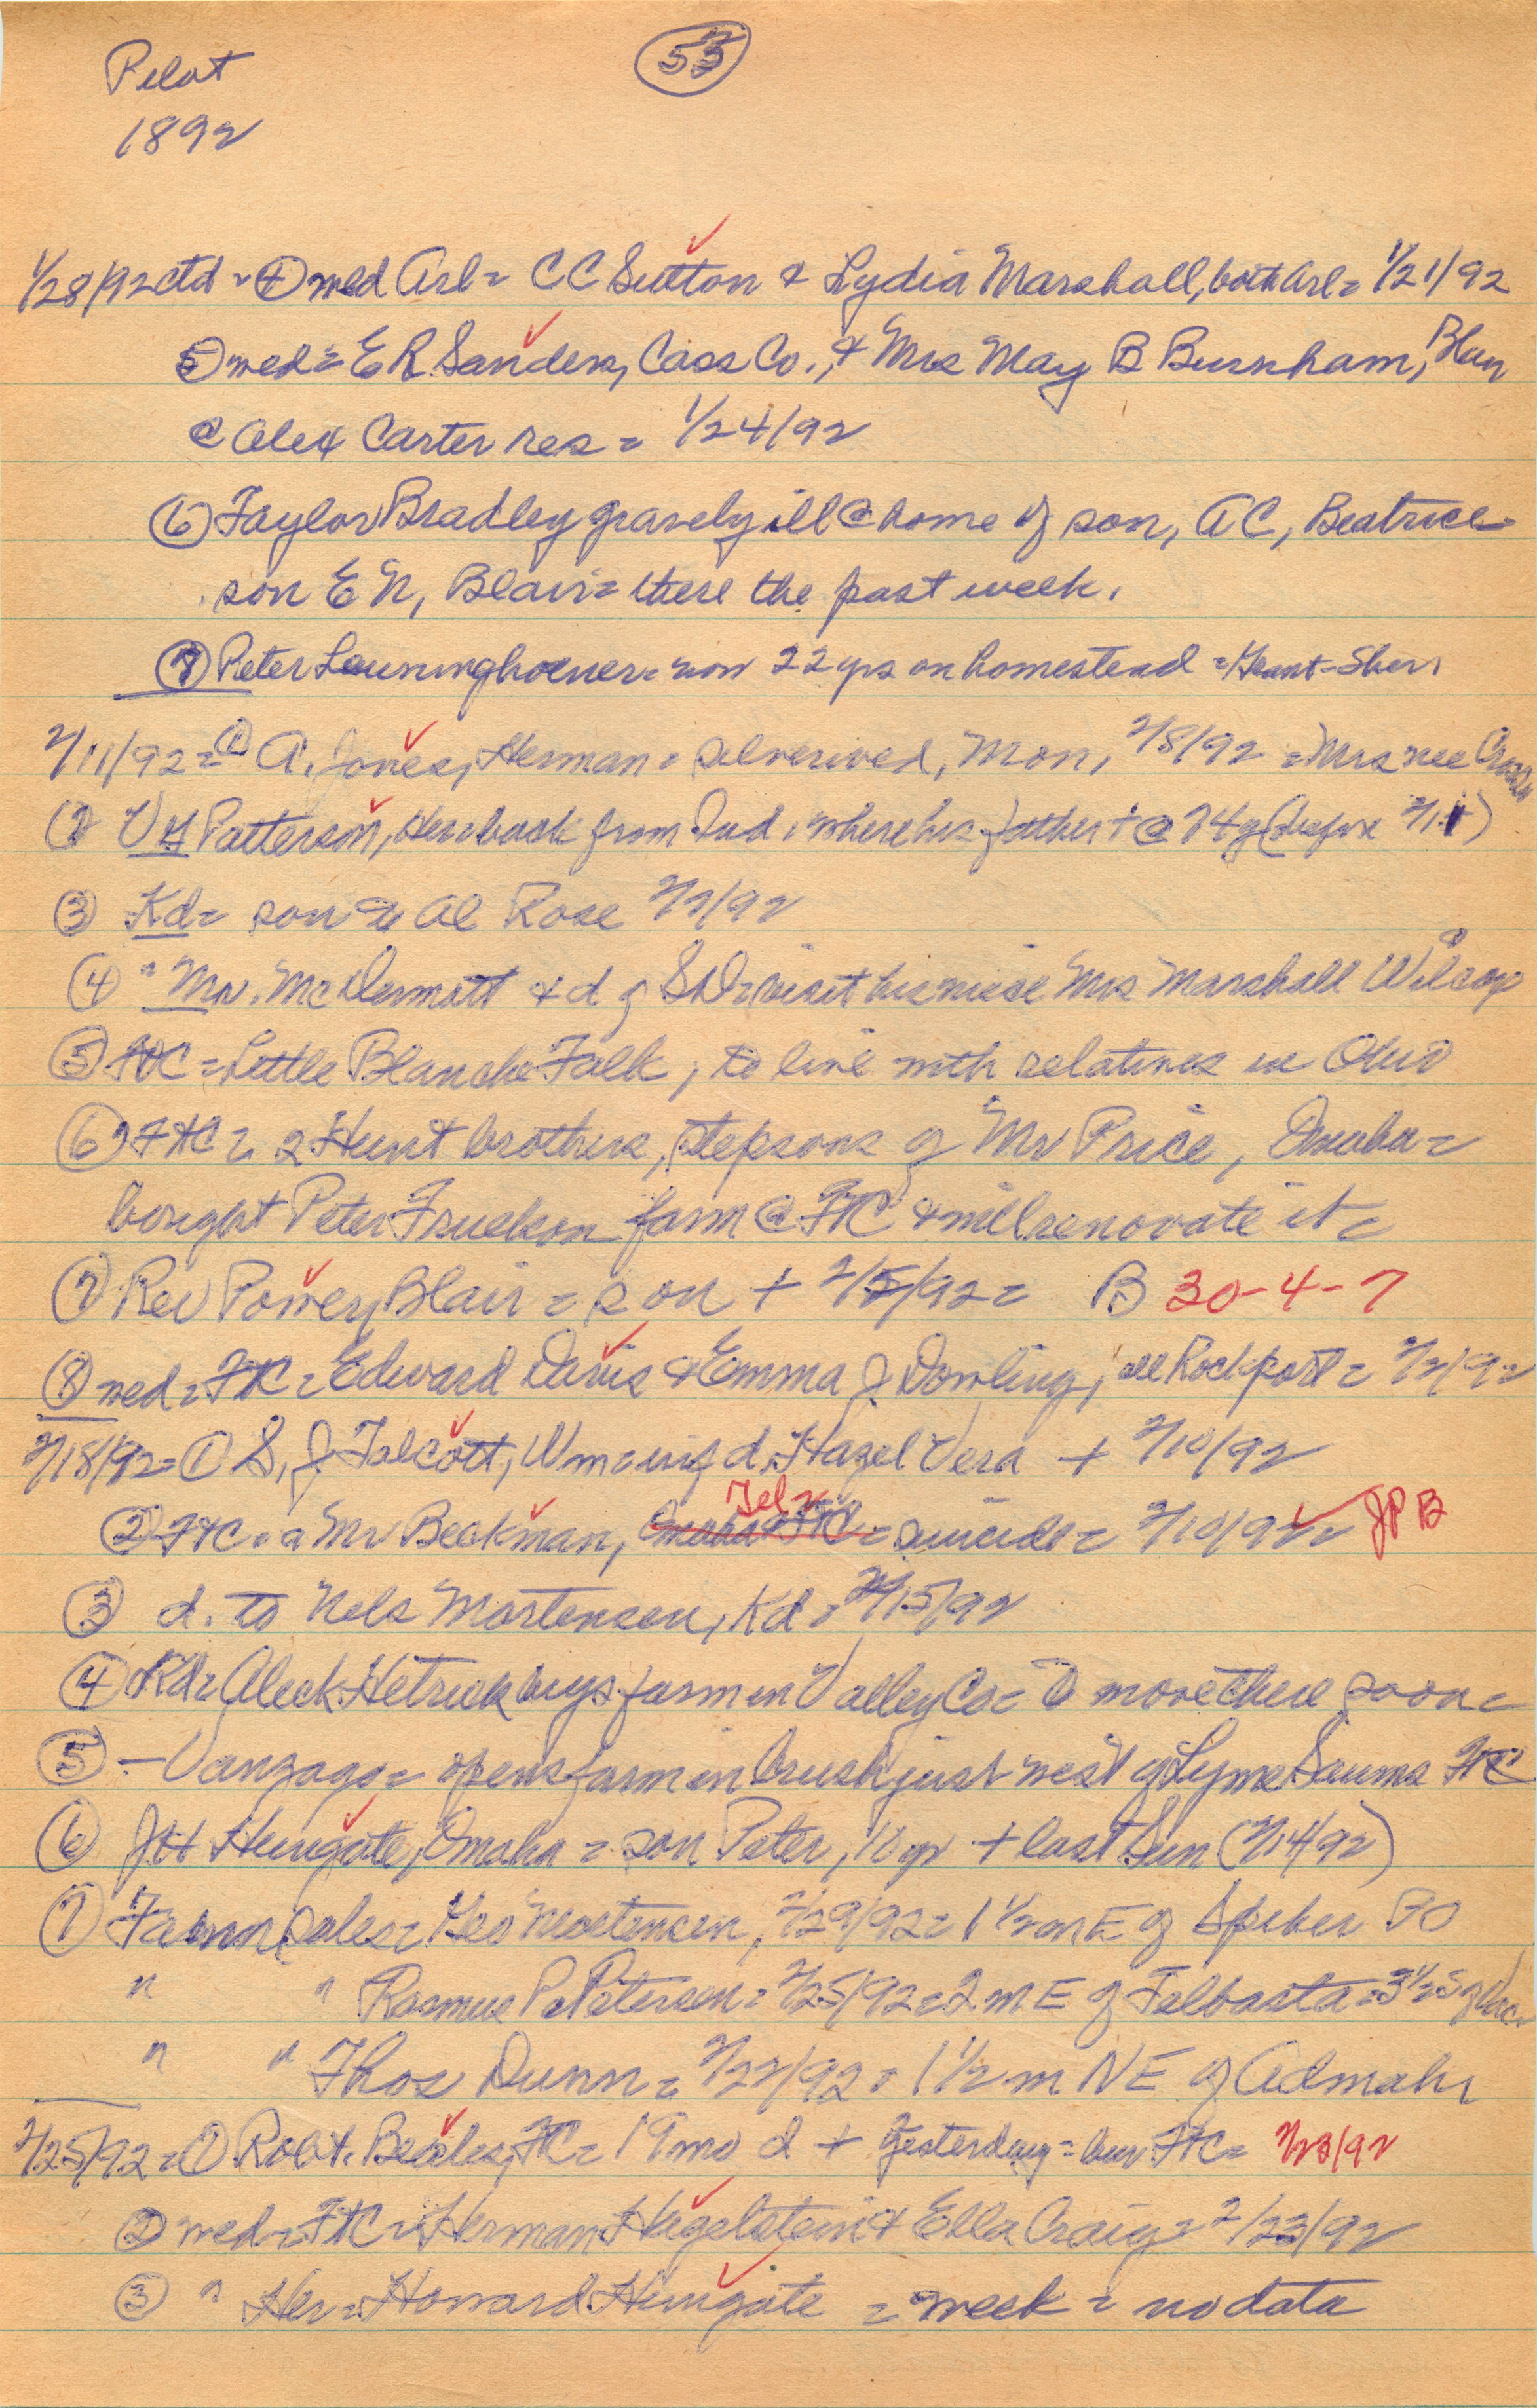 Pilot
55
1892
1/28/92 ctd = 4 wed Arl = CC Sutton & Lydia Marshall, both Arl = 1/21/92
5 wed = E R Sanders, Cass Co., & Mrs May B Burnham, Blair
@ Alex Carter res = 1/24/92
6 Taylor Bradley gravely ill @ home of son, AC, Beatrice
son E N, Blair = there the past week.
7 Peter = now 22 yrs on homestead = Grant-Sher
2/11/92 = 1 A. Jones, Herman = Mon, 2/8/92 = Mrs nee
2 Patterson, Her = back from Ind, where his father + @ 74 y (before 2/11)
3 Kd = son to Al Rose 2/2/92
4 " Mr. McDermott & d of SD = visit his niece Mrs Marshall Wilcox
5 FtC = Little Blanche Falk, to live with relatives in Ohio
6 FtC = 2 Hunt brothers, stepsons of Mr Price, Omaha =
bought Peter farm @ FtC & will renovate it =
7 Rev Power, Blair = son + 2/5/92 = B 30-4-7
8 wed = FtC = Edward Davis & Emma J Dowling, all Rockport = 2/2/92
2/18/92 = 1 S. J. Talcott, Wm = inf d, Hazel Vera + 2/10/92
2 FtC = a Mr Beckman, Tel = suicide = 2/10/92 JPB
3 d. to Nels Mortensen, Kd = 2/15/92
4 Kd = Aleck Hetrick buys farm in Valley Co = to move there soon =
5 - Vanzago = opens farm in brush just west of Lyme Saums FtC
6 JH Hungate, Omaha = son Peter, yr + last Sun (2/14/92)
7 Farm sales = Geo Mortensen, 2/29/92 = 1 1/2 m E of Spiker PO
" " Rasmus P Petersen = 2/25/92 = 2 m E of Telbasta = 3 1/2 S of
" " Thos Dunn = 2/22/92 = 1 1/2 m NE of Admah
2/25/92 = 1 Robt. Beales, FtC = 19 mo d + yesterday = bur FtC = 2/23/92
2 wed = FtC = Herman Hegelstein & Ella Craig = 2/23/92
3 " Her = Howard Hungate = week = no data